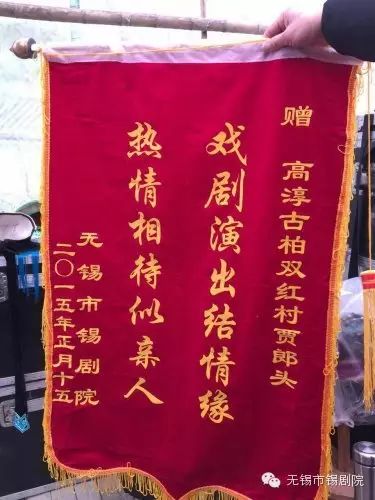 赠 高淳古柏双红村贾郎头
戏剧演出结情缘
热情相待似亲人
无锡市锡剧院
二〇一五年正月十五
无锡市锡剧院